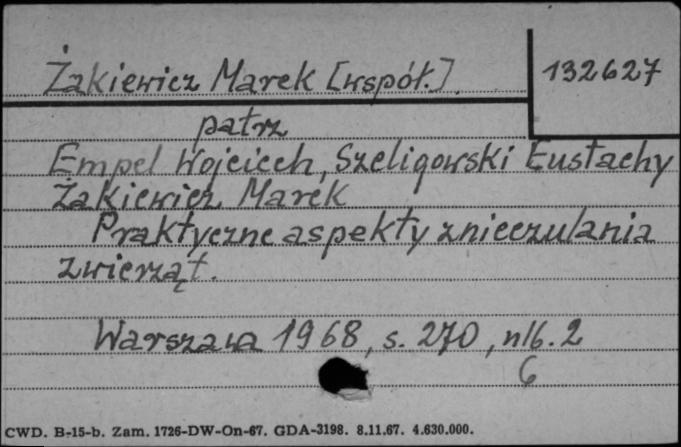 Żakiewicz Marek [współ.] 132627
patrz
Empel Wojciech, Szeligowski Eustachy
Żakiewicz Marek
Praktyczne aspekty znieczulania
zwierząt.
Warszawa 1968, s. 270, nlb. 2
6
CWD. B-15-b. Zam. 1726-DW-On-67. GDA-3198. 8.11.67. 4.630.000.